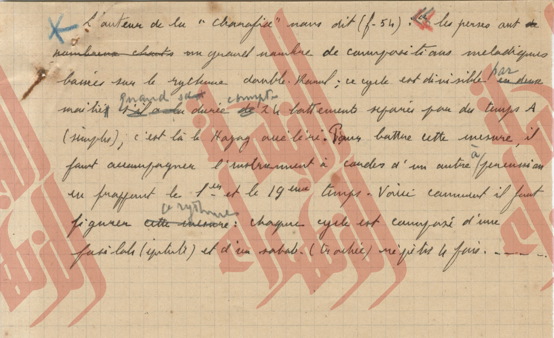 L'auteur de la "Charafia" nous dit (f-54) : les perses ont de
nombreux chants un grand nombre de compositions mélodiques
basées sur le rythme double-Ramal; ce cycle est divisible par en deux
moitiés quand sa durée compte 24 battements séparés par des temps A
(simple), c'est là le Hazag accéléré. Pour battre cette mesure, il
faut accompagner l'instrument à cordes d'un autre à percussion
en frappant le 1er et le 19ème temps. Voici comment il faut
figurer cette mesure ce rythme : chaque cycle est composé d'une
fasilah (épitrite) et d'un sabab. (trochée) répétés 4 fois.